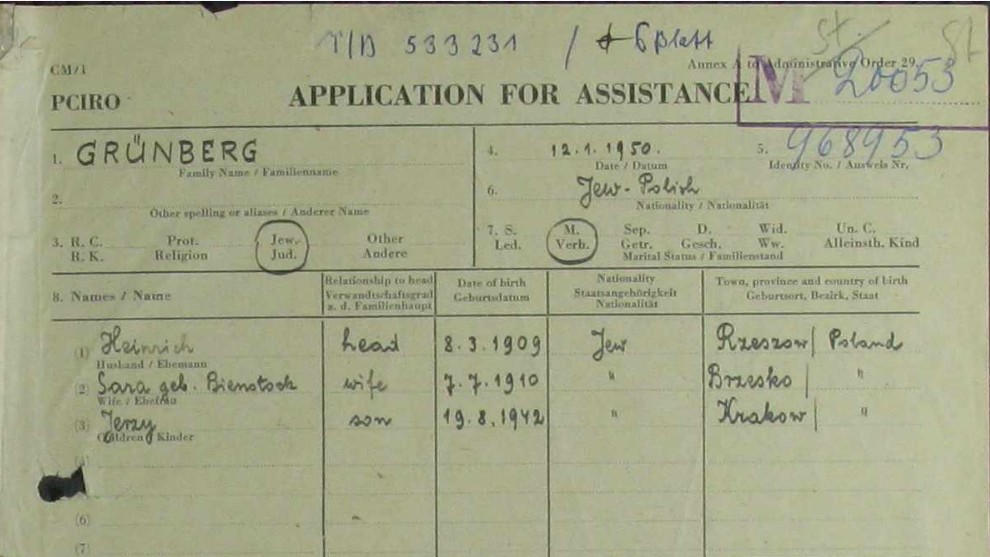 T/D 533231 / 6 Blatt
St. St
CM/1 Annex A to Administrative Order 29
PCIRO APPLICATION FOR ASSISTANCE M 20053
1. GRÜNBERG 4. 12.1.1950. 5. 968953
Family Name / Familienname Date / Datum Identity No. / Ausweis Nr.
2. 6. Jew-Polish
Other spelling or aliases / Anderer Name Nationality / Nationalität
3. R. C. Prot. Jew. Other 7. S. M. Sep. D. Wid. Un. C.
R. K. Religion Jud. Andere Led. Verb. Getr. Gesch. Ww. Alleinsth. Kind
Marital Status / Familienstand
8. Names / Name Relationship to head Verwandtschaftsgrad z. d. Familienhaupt Date of birth Geburtsdatum Nationality Staatsangehörigkeit Nationalität Town, province and country of birth Geburtsort, Bezirk, Staat
(1) Heinrich head 8.3.1909 Jew Rzeszow / Poland
Husband / Ehemann
(2) Sara geb. Bienstock wife 7.7.1910 " Brzesko / "
Wife / Ehefrau
(3) Jerzy son 19.8.1942 " Krakow / "
Children / Kinder
(4)
(6)
(7)